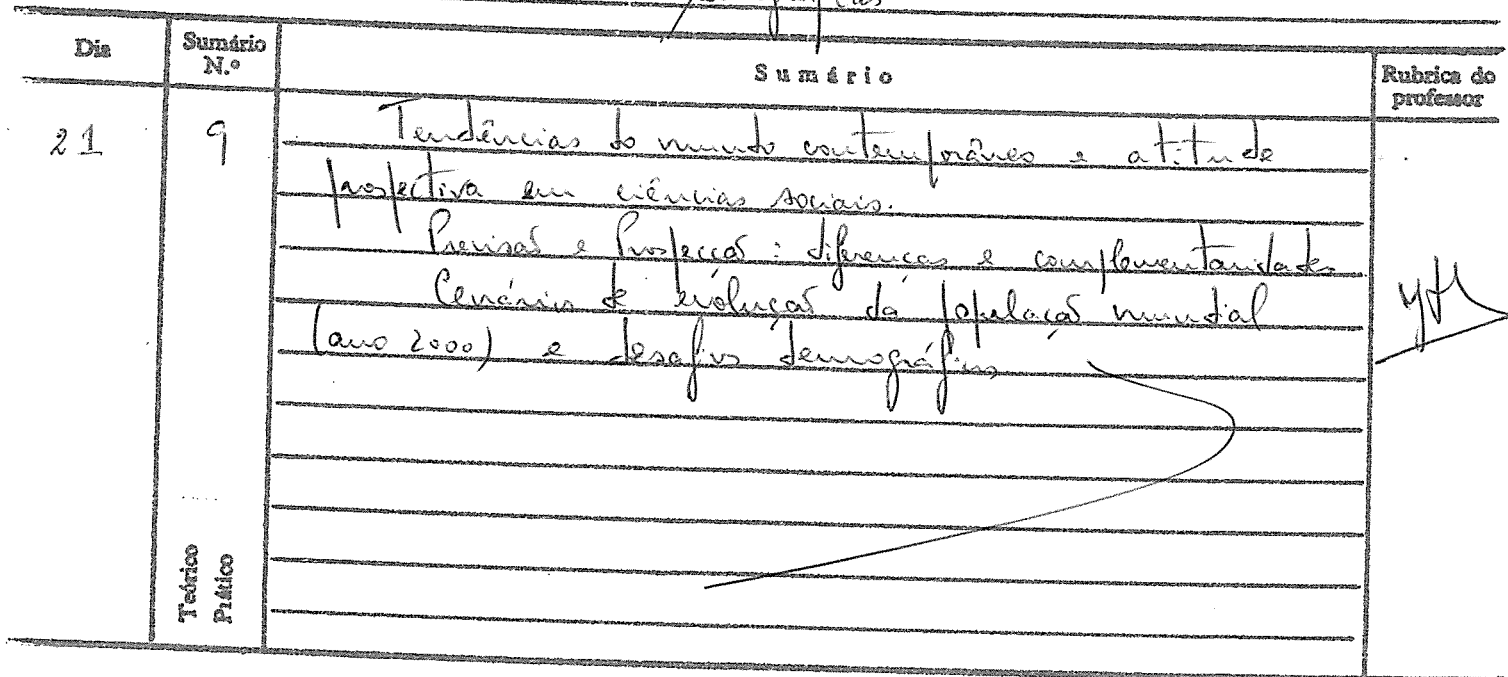 Dia
Sumário N.º
Sumário
Rubrica do professor
21
9
Tendências do mundo contemporâneo e atitude
prospectiva em ciências sociais.
Previsão e Prospecção : diferenças e complementaridades
Cenários de evolução da população mundial
(ano 2000) e desafios demográficos
Teórico
Prático